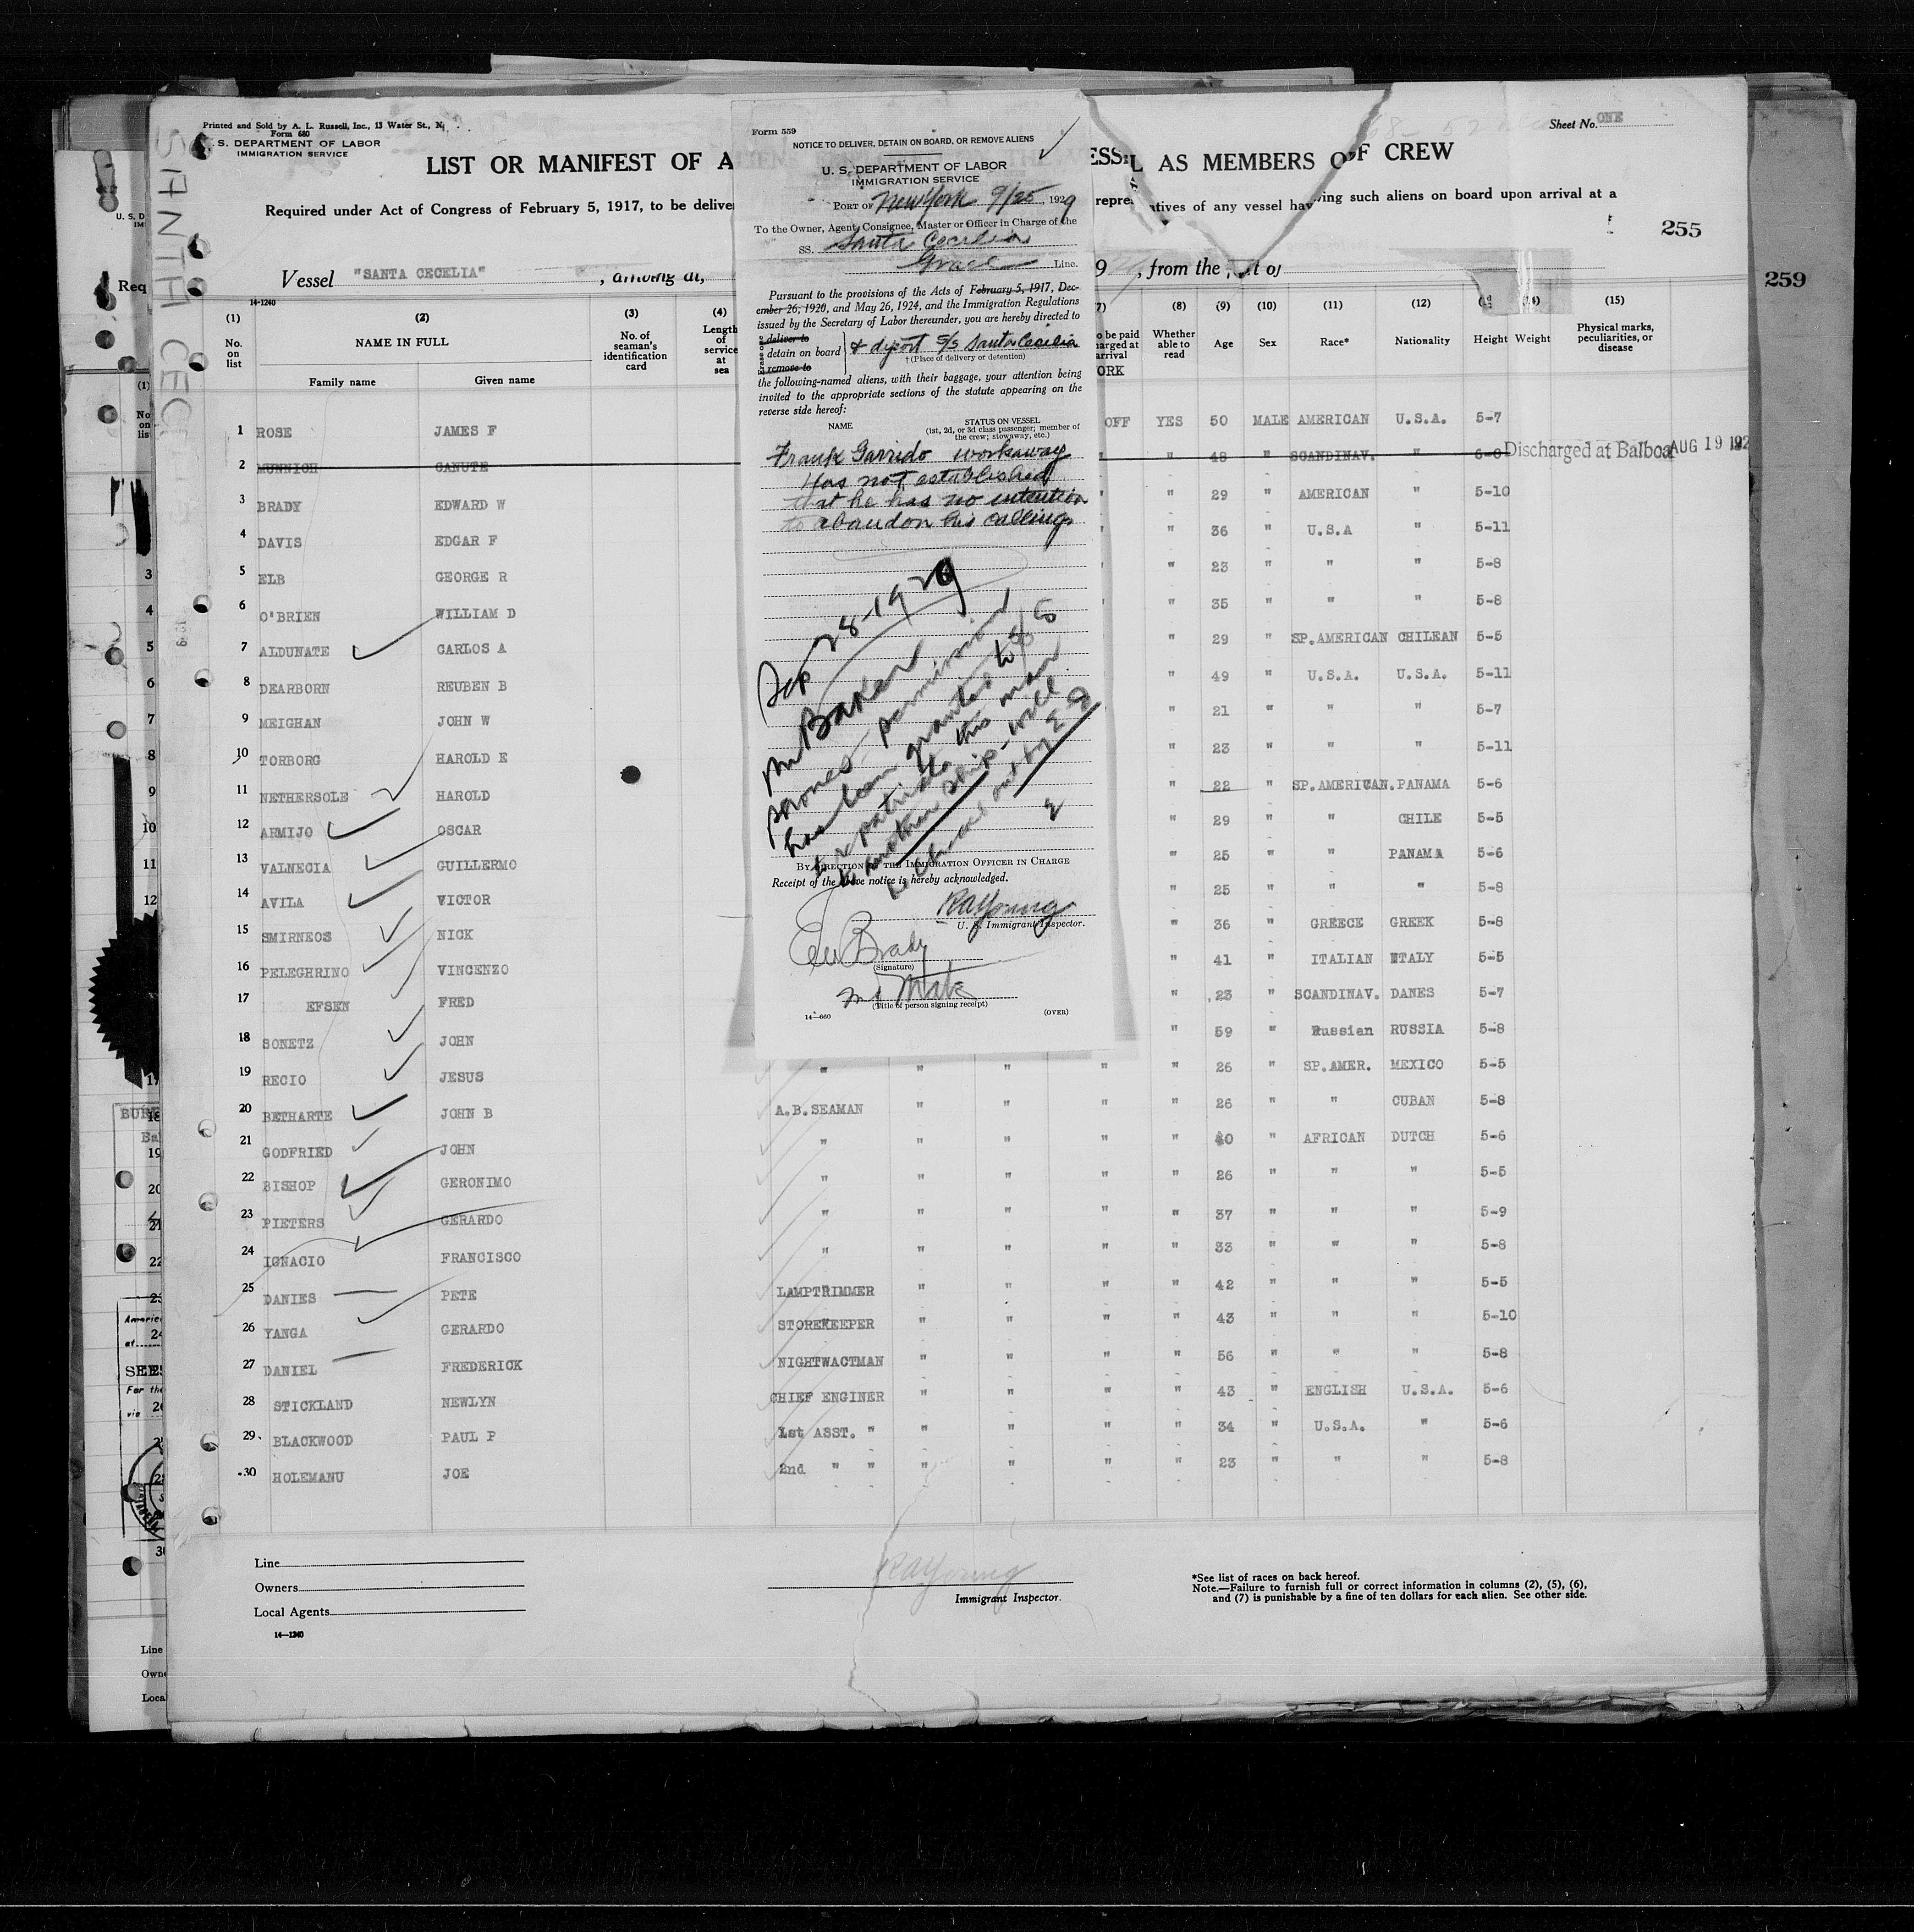 Printed and Sold by A. L. Russell, Inc., 13 Water St., N.
Form 680
S. DEPARTMENT OF LABOR
IMMIGRATION SERVICE
Sheet No. ONE
LIST OR MANIFEST OF A
ESSEL AS MEMBERS OF CREW
Required under Act of Congress of February 5, 1917, to be delive
repre
tatives of any vessel having such aliens on board upon arrival at a
255
259
Vessel "SANTA CECELIA" , arriving at,
9 , from the port of
SANTA CEC
Form 559
NOTICE TO DELIVER, DETAIN ON BOARD, OR REMOVE ALIENS
U. S. DEPARTMENT OF LABOR
IMMIGRATION SERVICE
PORT OF New York 9/25, 1929
To the Owner, Agent, Consignee, Master or Officer in Charge of the
SS. Santa Cecilia
Grace Line.
Pursuant to the provisions of the Acts of February 5, 1917, Dec-
ember 26, 1920, and May 26, 1924, and the Immigration Regulations
issued by the Secretary of Labor thereunder, you are hereby directed to
deliver to
detain on board & deport S/S Santa Cecilia
remove to
†(Place of delivery or detention)
the following-named aliens, with their baggage, your attention being
invited to the appropriate sections of the statute appearing on the
reverse side hereof:
NAME
STATUS ON VESSEL
(1st, 2d, or 3d class passenger; member of
the crew; stowaway, etc.)
Frank Garrido workaway
Has not established
that he has no intention
to abandon his calling
Sep 28-1929
Mr Baker
phones permission
has been granted to S S
to repatriate this man
by another ship - will
be checked out by
BY DIRECTION OF THE IMMIGRATION OFFICER IN CHARGE
Receipt of the above notice is hereby acknowledged.
RAYoung
U. S. Immigrant Inspector.
EW Brady
(Signature)
(Title of person signing receipt)
14—660
(OVER)
14-1240
(1) (2) (3) (4) 7) (8) (9) (10) (11) (12) (14) (15)
No. on list
NAME IN FULL
Family name Given name
No. of seaman's identification card
Length of service at sea
o be paid
harged at
arrival
ORK
Whether able to read
Age Sex Race* Nationality Height Weight
Physical marks, peculiarities, or disease
1 ROSE JAMES F OFF YES 50 MALE AMERICAN U.S.A. 5-7
2 MUNNICH CANUTE " " 48 " SCANDINAV. " Discharged at Balboa AUG 19 192
3 BRADY EDWARD W " " 29 " AMERICAN " 5-10
4 DAVIS EDGAR F " " 36 " U.S.A " 5-11
5 ELB GEORGE R " " 23 " " " 5-8
6 O'BRIEN WILLIAM D " " 35 " " " 5-8
7 ALDUNATE CARLOS A " 29 " SP.AMERICAN CHILEAN 5-5
8 DEARBORN REUBEN B " 49 " U.S.A. U.S.A. 5-11
9 MEIGHAN JOHN W " 21 " " " 5-7
10 TORBORG HAROLD E " 23 " " " 5-11
11 NETHERSOLE HAROLD " 22 " SP.AMERICAN. PANAMA 5-6
12 ARMIJO OSCAR " 29 " " CHILE 5-5
13 VALNECIA GUILLERMO " 25 " " PANAMA 5-6
14 AVILA VICTOR " 25 " " " 5-8
15 SMIRNEOS NICK " 36 " GREECE GREEK 5-8
16 PELEGHRINO VINCENZO " 41 " ITALIAN ITALY 5-5
17 EFSEN FRED " 23 " SCANDINAV. DANES 5-7
18 SONETZ JOHN " 59 " Russian RUSSIA 5-8
19 RECIO JESUS " " " " " 26 " SP.AMER. MEXICO 5-5
20 BETHARTE JOHN B A.B.SEAMAN " " " " 26 " " CUBAN 5-8
21 GODFRIED JOHN " " " " " 40 " AFRICAN DUTCH 5-6
22 BISHOP GERONIMO " " " " " 26 " " " 5-5
23 PIETERS GERARDO " " " " " 37 " " " 5-9
24 IGNACIO FRANCISCO " " " " " 33 " " " 5-8
25 DANIES PETE LAMPTRIMMER " " " " 42 " " " 5-5
26 YANGA GERARDO STOREKEEPER " " " " 43 " " " 5-10
27 DANIEL FREDERICK NIGHTWACTMAN " " " " 56 " " " 5-8
28 STICKLAND NEWLYN CHIEF ENGINER " " " " 43 " ENGLISH U.S.A. 5-6
29 BLACKWOOD PAUL P 1st ASST. " " " " " 34 " U.S.A. " 5-6
30 HOLEMANU JOE 2nd " " " " " " 23 " " " 5-8
Line
Owners
Local Agents
14—1240
RAYoung
Immigrant Inspector.
*See list of races on back hereof.
Note.—Failure to furnish full or correct information in columns (2), (5), (6),
and (7) is punishable by a fine of ten dollars for each alien. See other side.